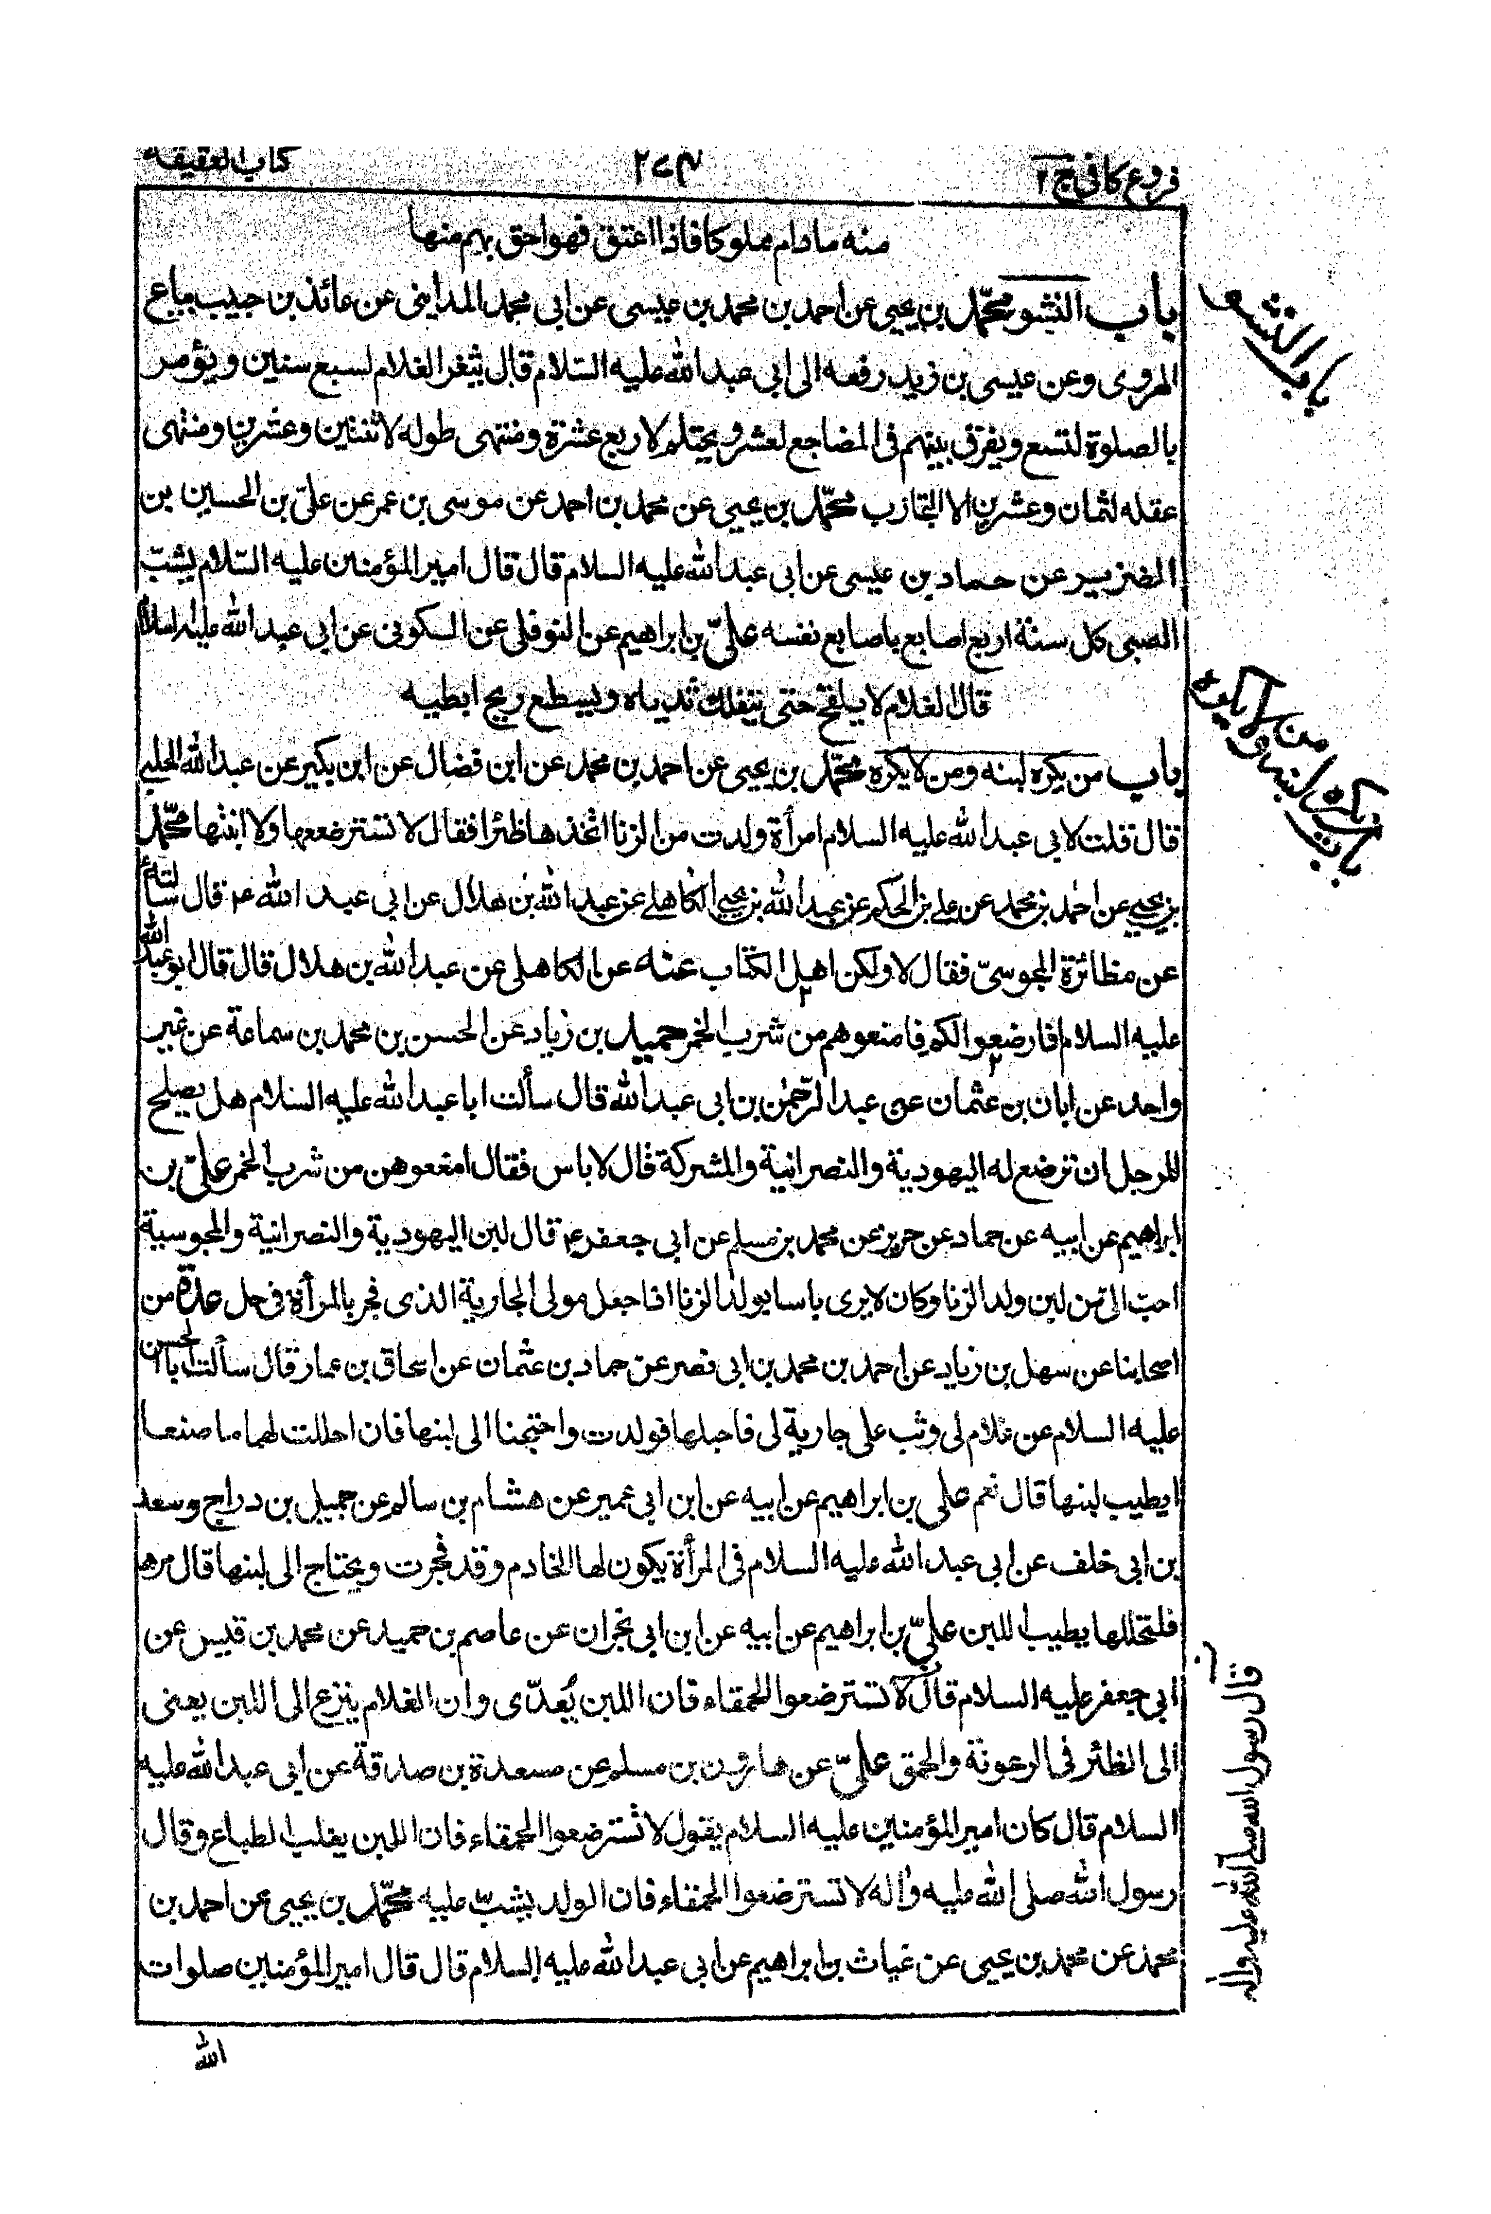 فروع كافى ج ٢
٢٧٣
كتاب العقيقه
منه مادام مملوكا فاذا اعتق فهو احق بهم منها
باب النشو محمّد بن يحيى عن احمد بن محمد بن عيسى عن ابى محمد المداينى عن عائذ بن حبيب بياع
الهروى وعن عيسى بن زيد رفعه الى ابى عبد الله عليه السّلام قال يثغر الغلام لسبع سنين ويؤمر
بالصلوة لتسع ويفرّق بينهم فى المضاجع لعشر ويحتلم لاربع عشرة ومنتهى طوله لاثنتين وعشرين ومنتهى
عقله لثمان وعشرين الا التجارب محمّد بن يحيى عن محمد بن احمد عن موسى بن عمر عن علىّ بن الحسين بن
الضرير عن حماد بن عيسى عن ابى عبد الله عليه السلام قال قال امير المؤمنين عليه السّلام يشبّ
الصبى كل سنة اربع اصابع باصابع نفسه علىّ بن ابراهيم عن النوفلى عن السكونى عن ابى عبد الله عليه السلام
قال الغلام لا يلقح حتى يتفلك ثدياه ويسطع ريح ابطيه
باب من يكره لبنه ومن لا يكره محمّد بن يحيى عن احمد بن محمد عن ابن فضال عن ابن بكير عن عبد الله الحلبى
قال قلت لابى عبد الله عليه السلام امرأة ولدت من الزنا اتخذها ظئرا فقال لا تسترضعها ولا ابنتها محمّد
بن يحيى عن احمد بن محمد عن على بن الحكم عن عبد الله بن يحيى الكاهلى عن عبد الله بن هلال عن ابى عبد الله ع قال سألته
عن مظائرة المجوسىّ فقال لا ولكن اهل الكتاب عنه عن الكاهلى عن عبد الله بن هلال قال قال ابو عبد الله
عليه السلام اذا ارضعوا لكم فامنعوهم من شرب الخمر حميد بن زياد عن الحسن بن محمد بن سماعة عن غير
واحد عن ابان بن عثمان عن عبد الرّحمن بن ابى عبد الله قال سألت ابا عبد الله عليه السلام هل يصلح
للرجل ان ترضع له اليهودية والنصرانية والمشركة قال لا باس فقال امنعوهن من شرب الخمر علىّ بن
ابراهيم عن ابيه عن حماد عن حريز عن محمد بن مسلم عن ابى جعفر ع قال لبن اليهودية والنصرانية والمجوسية
احبّ الىّ من لبن ولد الزنا وكان لا يرى باسا بولد الزنا اذا جعل مولى الجارية الذى فجر بالمرأة فى حل عدّة من
اصحابنا عن سهل بن زياد عن احمد بن محمد بن ابى نصر عن حماد بن عثمان عن اسحاق بن عمار قال سألت ابا الحسن
عليه السلام عن غلام لى وثب على جارية لى فاحبلها فولدت واحتجنا الى لبنها فان احللت لهما ما صنعا
ايطيب لبنها قال نعم على بن ابراهيم عن ابيه عن ابن ابى عمير عن هشام بن سالم عن جميل بن دراج وسعد
بن ابى خلف عن ابى عبد الله عليه السلام فى المرأة يكون لها الخادم وقد فجرت ويحتاج الى لبنها قال مرها
فلتحللها يطيب اللبن علىّ بن ابراهيم عن ابيه عن ابن ابى نجران عن عاصم بن حميد عن محمد بن قيس عن
ابى جعفر عليه السلام قال لا تسترضعوا الحمقاء فان اللبن يُعدّى وان الغلام ينزع الى اللبن يعنى
الى الظئر فى الرعونة والحمق علىّ عن هارون بن مسلم عن مسعدة بن صدقة عن ابى عبد الله عليه
السلام قال كان امير المؤمنين عليه السلام يقول لا تسترضعوا الحمقاء فان اللبن يغلب الطباع وقال
رسول الله صلى الله عليه وآله لا تسترضعوا الحمقاء فان الولد يشبّ عليه محمّد بن يحيى عن احمد بن
محمد عن محمد بن يحيى عن غياث بن ابراهيم عن ابى عبد الله عليه السلام قال قال امير المؤمنين صلوات
الله
باب النشو
باب من يكره لبنه ولا يكره
قال رسول الله صلى الله عليه وآله